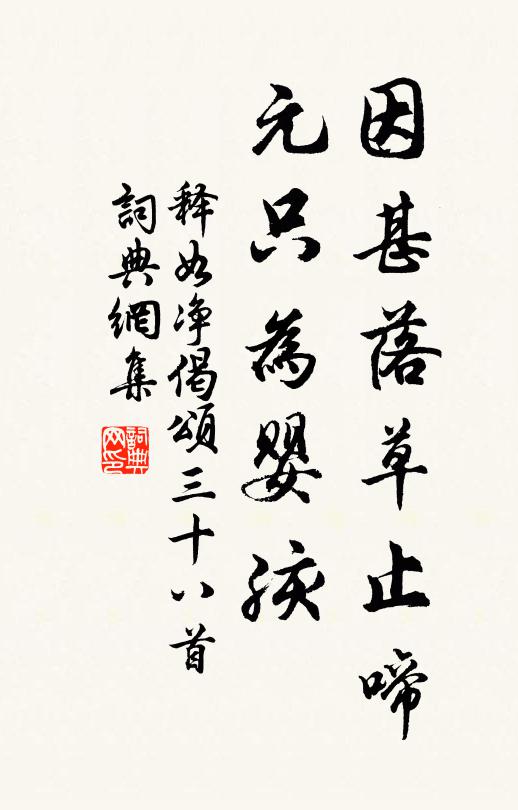 因甚落草止啼
元只為嬰孩
释如净偈頌三十八首
詞典網集
詞典网印